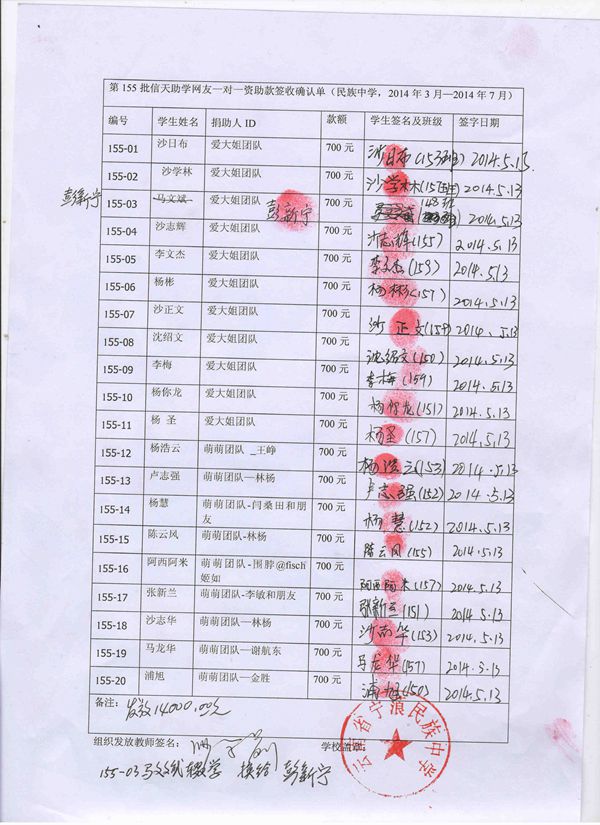 第 155 批信天助学网友一对一资助款签收确认单（民族中学，2014 年 3 月—2014 年 7 月）
编号 学生姓名 捐助人 ID 款额 学生签名及班级 签字日期
155-01 沙日布 爱大姐团队 700 元 沙日布(153班) 2014.5.13
155-02 沙学林 爱大姐团队 700 元 沙学林(157班) 2014.5.13
彭新宁 155-03 马文斌 爱大姐团队 彭新宁 700 元 2014.5.13
155-04 沙志辉 爱大姐团队 700 元 沙志辉(155) 2014.5.13
155-05 李文杰 爱大姐团队 700 元 李文杰(159) 2014.5.13
155-06 杨彬 爱大姐团队 700 元 杨彬(157) 2014.5.13
155-07 沙正文 爱大姐团队 700 元 沙正文(159) 2014.5.13
155-08 沈绍文 爱大姐团队 700 元 沈绍文(150) 2014.5.13
155-09 李梅 爱大姐团队 700 元 李梅(159) 2014.5.13
155-10 杨你龙 爱大姐团队 700 元 杨你龙(151) 2014.5.13
155-11 杨 圣 爱大姐团队 700 元 杨圣(157) 2014.5.13
155-12 杨浩云 萌萌团队 _王峥 700 元 杨浩云(153) 2014.5.13
155-13 卢志强 萌萌团队—林杨 700 元 卢志强(152) 2014.5.13
155-14 杨慧 萌萌团队-闫桑田和朋 700 元 杨慧(152) 2014.5.13
友
155-15 陈云风 萌萌团队-林杨 700 元 陈云风(155) 2014.5.13
155-16 阿西阿米 萌萌团队-围脖@fisch 700 元 阿西阿米(157) 2014.5.13
姬如
155-17 张新兰 萌萌团队-李敏和朋友 700 元 张新兰(151) 2014.5.13
155-18 沙志华 萌萌团队—林杨 700 元 沙志华(153) 2014.5.13
155-19 马龙华 萌萌团队—谢航东 700 元 马龙华(157) 2014.5.13
155-20 浦旭 萌萌团队—金胜 700 元 浦旭(150) 2014.5.13
备注： 发放14000.00元
组织发放教师签名： 学校盖章：
云南省宁蒗民族中学
155-03马文斌辍学 换给 彭新宁